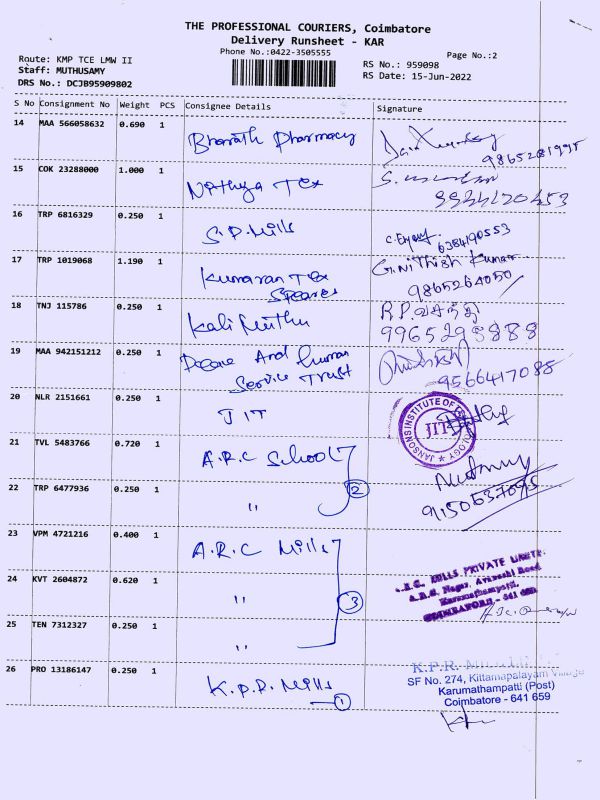 THE PROFESSIONAL COURIERS, Coimbatore
Delivery Runsheet - KAR
Phone No.:0422-3505555
Page No.:2
Route: KMP TCE LMW II
RS No.: 959098
Staff: MUTHUSAMY
RS Date: 15-Jun-2022
DRS No.: DCJB95909802
S No Consignment No Weight PCS Consignee Details Signature
14 MAA 566058632 0.690 1 Bharath Pharmacy
15 COK 23288000 1.000 1 Nithya Tex
9944170453
16 TRP 6816329 0.250 1 S.P. Mills
6384190553
17 TRP 1019068 1.190 1 Kumaran Tex
Spares
G. Nithish Kumar
9865264050
18 TNJ 115786 0.250 1 Kali Muthu
R.P.
9965295888
19 MAA 942151212 0.250 1 Peace And human
Service Trust
9566417088
20 NLR 2151661 0.250 1 JIT
JANSONS INSTITUTE OF TECHNOLOGY
JIT
21 TVL 5483766 0.720 1 A.R.C School
22 TRP 6477936 0.250 1 " 2
9150537095
23 VPM 4721216 0.400 1 A.R.C Mills
24 KVT 2604872 0.620 1 " 3
MILLS PRIVATE LIMITED
Nagar, Avanashi Road
Karumathampatti,
COIMBATORE - 641
25 TEN 7312327 0.250 1 "
26 PRO 13186147 0.250 1 K.P.R. Mills 1
K.P.R.
SF No. 274, Kittampalayam Village
Karumathampatti (Post)
Coimbatore - 641 659